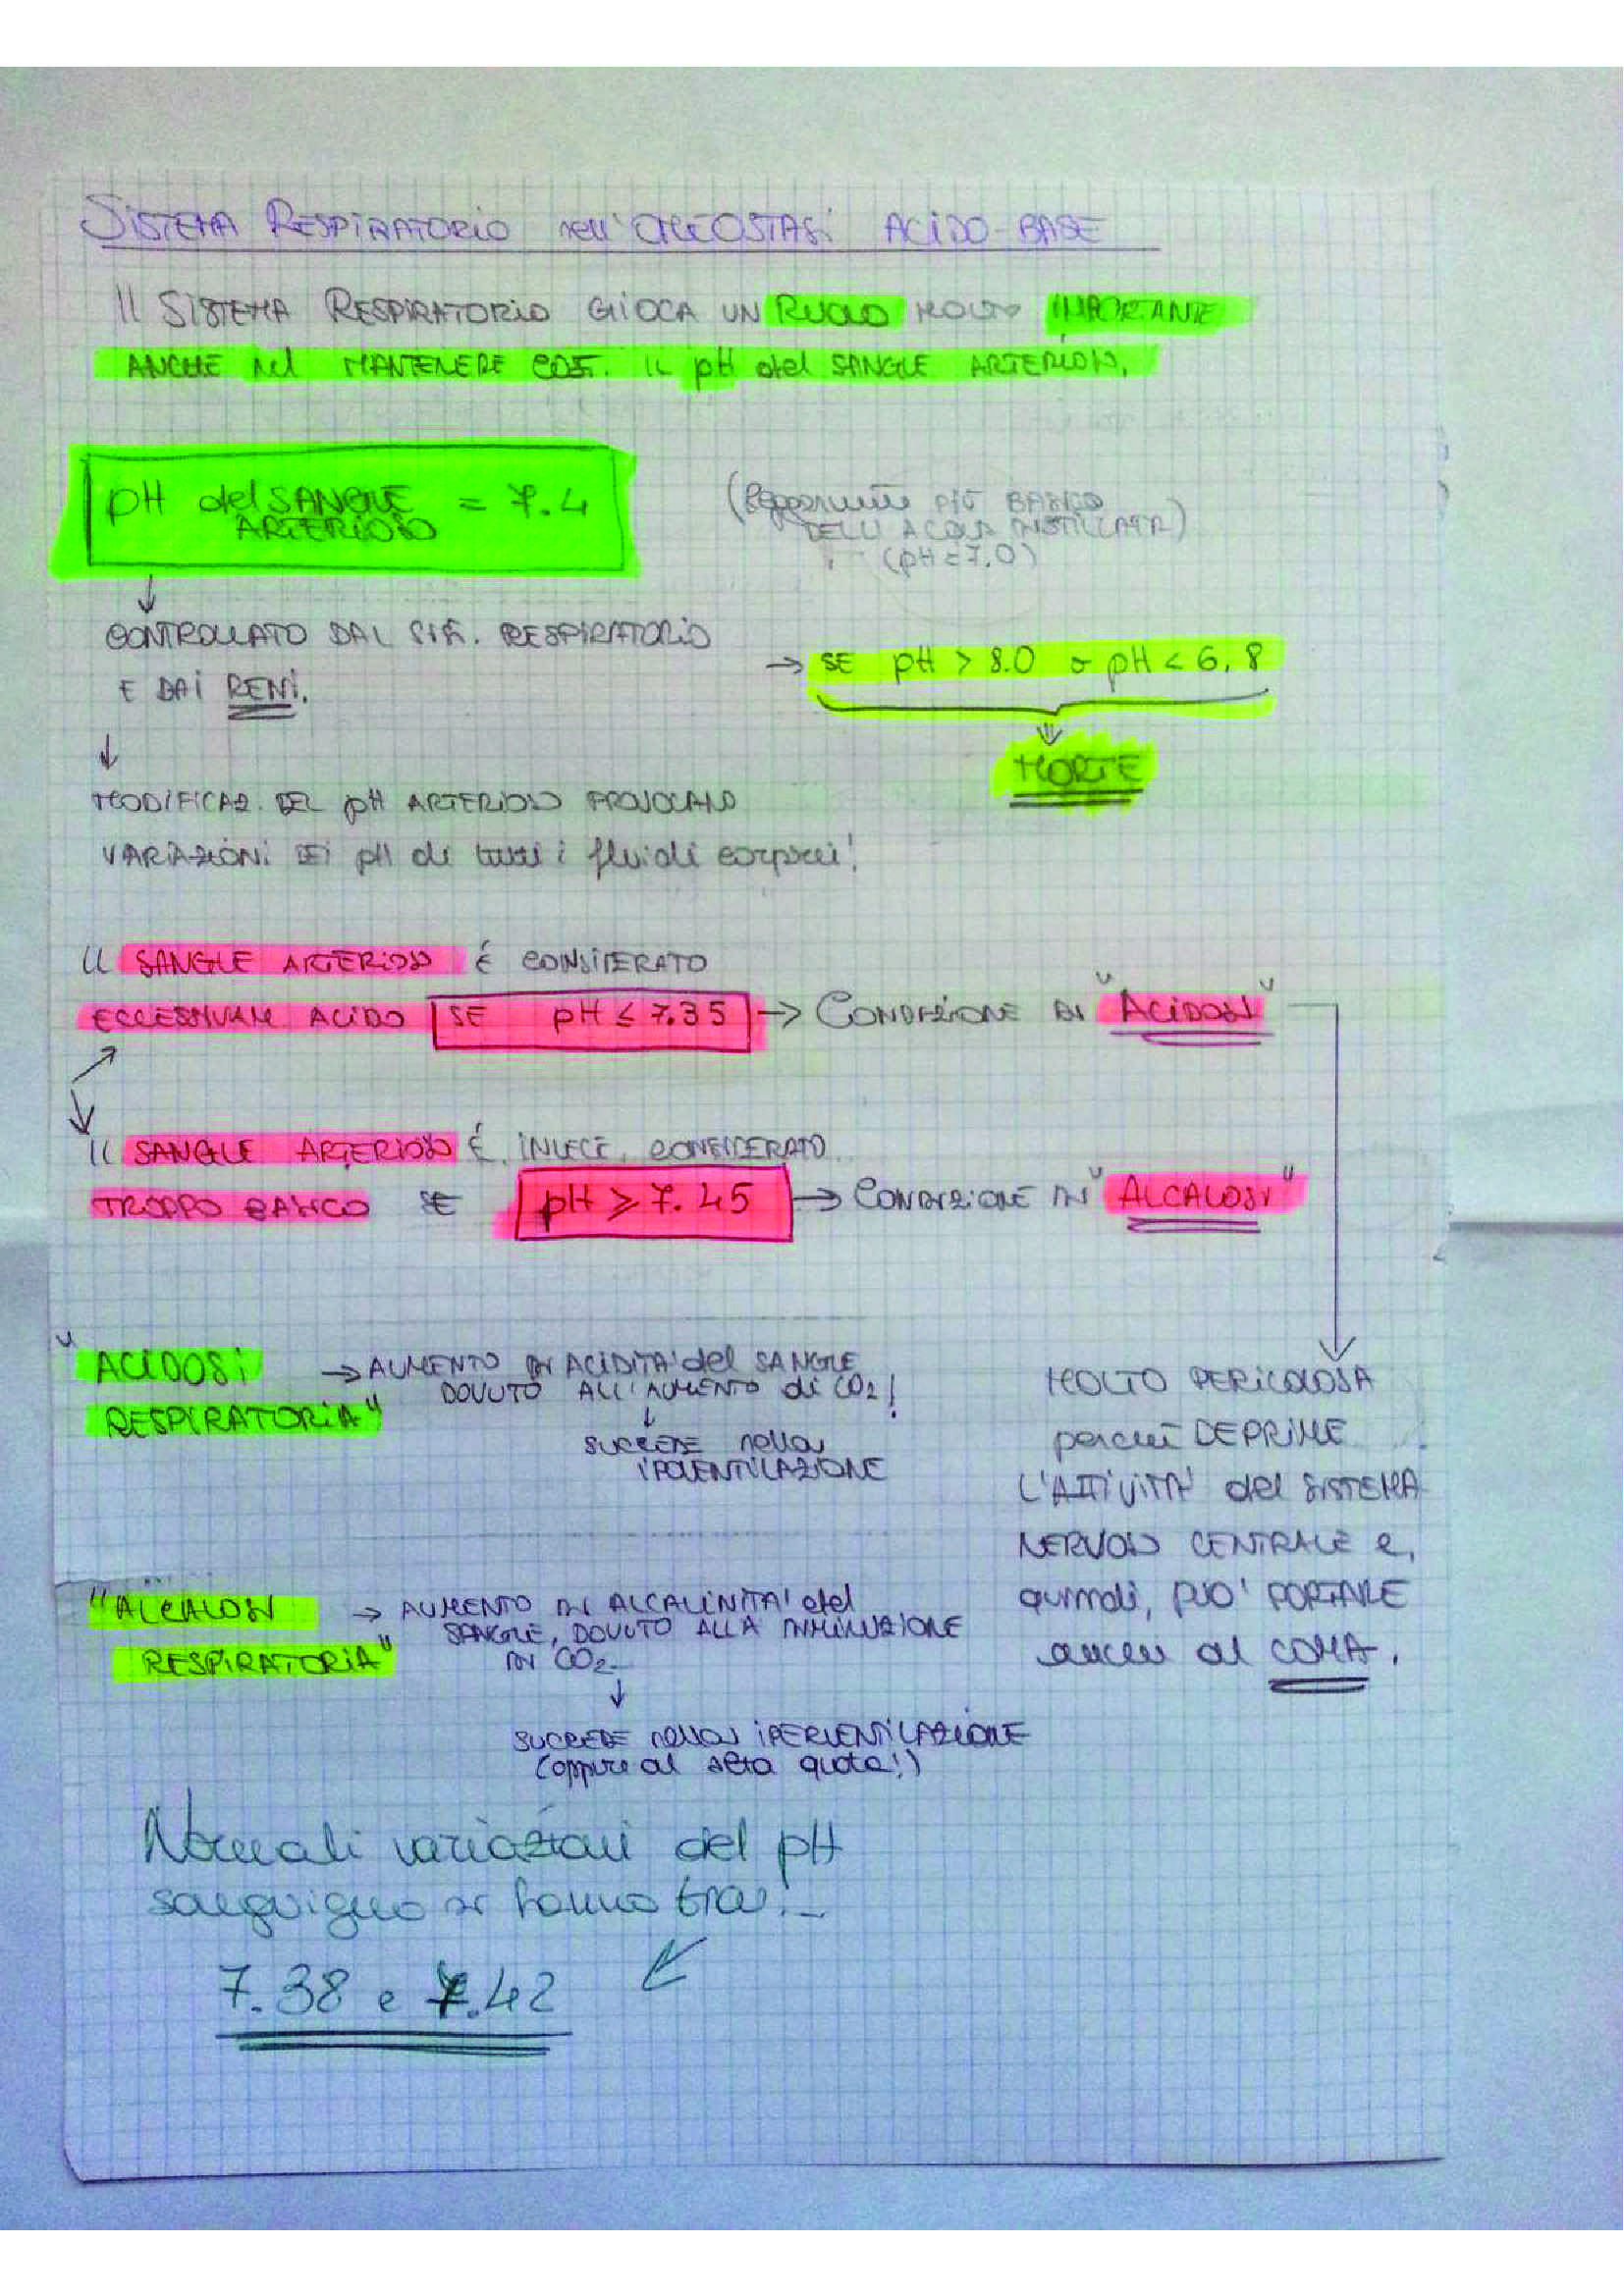 SISTEMA RESPIRATORIO nell'OMEOSTASI ACIDO-BASE
Il SISTEMA RESPIRATORIO GIOCA UN RUOLO MOLTO IMPORTANTE
ANCHE nel MANTENERE COST. IL pH del SANGUE ARTERIOSO.
pH del SANGUE ARTERIOSO = 7.4
(leggermente PIÙ BASICO
DELL'ACQUA DISTILLATA)
(pH=7.0)
CONTROLLATO DAL SIS. RESPIRATORIO
E DAI RENI.
→ SE pH > 8.0 o pH < 6.8
MORTE
MODIFICAZ. DEL pH ARTERIOSO PROVOCANO
VARIAZIONI DEI pH di tutti i fluidi corporei!
Il SANGUE ARTERIOSO É CONSIDERATO
ECCESSIVAM ACIDO SE pH ≤ 7.35 → CONDIZIONE DI "ACIDOSI"
Il SANGUE ARTERIOSO É, INVECE, CONSIDERATO
TROPPO BASICO SE pH ≥ 7.45 → CONDIZIONE DI "ALCALOSI"
"ACIDOSI
RESPIRATORIA"
→ AUMENTO DI ACIDITA' del SANGUE
DOVUTO ALL'AUMENTO di CO2!
SUCCEDE nella
IPOVENTILAZIONE
MOLTO PERICOLOSA
perché DEPRIME
L'ATTIVITA' del SISTEMA
NERVOSO CENTRALE e,
quindi, PUO' PORTARE
anche al COMA.
"ALCALOSI
RESPIRATORIA"
→ AUMENTO DI ALCALINITA' del
SANGUE, DOVUTO ALLA DIMINUZIONE
DI CO2
SUCCEDE nella IPERVENTILAZIONE
(oppure ad alta quota!)
Normali variazioni del pH
sanguigno si hanno tra:
7.38 e 7.42